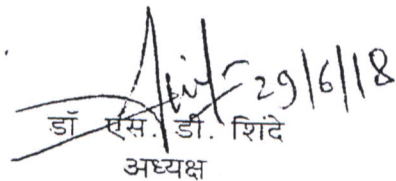 29/6/18
डॉ एस. डी. शिंदे
अध्यक्ष